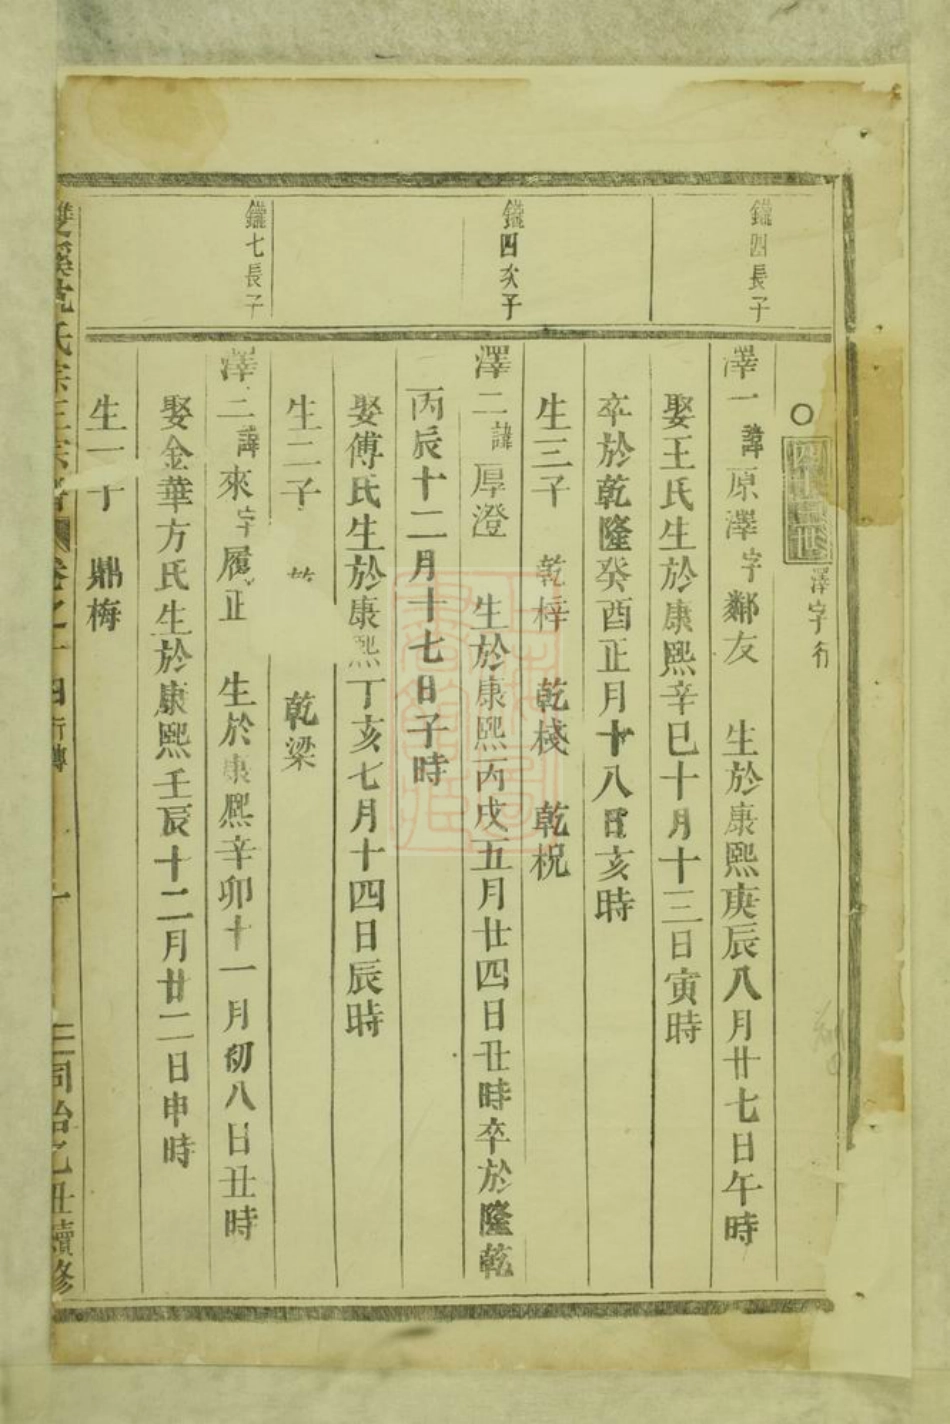 澤字行
鑑四長子
澤一諱原澤字鄰友 生於康熙庚辰八月廿七日午時
娶王氏生於康熙辛巳十月十三日寅時
卒於乾隆癸酉正月十八日亥時
生三子 乾梓 乾棧 乾柷
鑑四次子
澤二諱厚澄 生於康熙丙戌五月廿四日丑時卒於隆乾
丙辰十二月十七日子時
娶傅氏生於康熙丁亥七月十四日辰時
生二子 乾 乾梁
鑑七長子
澤二諱來字履正 生於康熙辛卯十一月初八日丑時
娶金華方氏生於康熙壬辰十二月廿二日申時
生一子 鼎梅
雙溪 氏宗 卷之 四行傳 同治乙丑續修